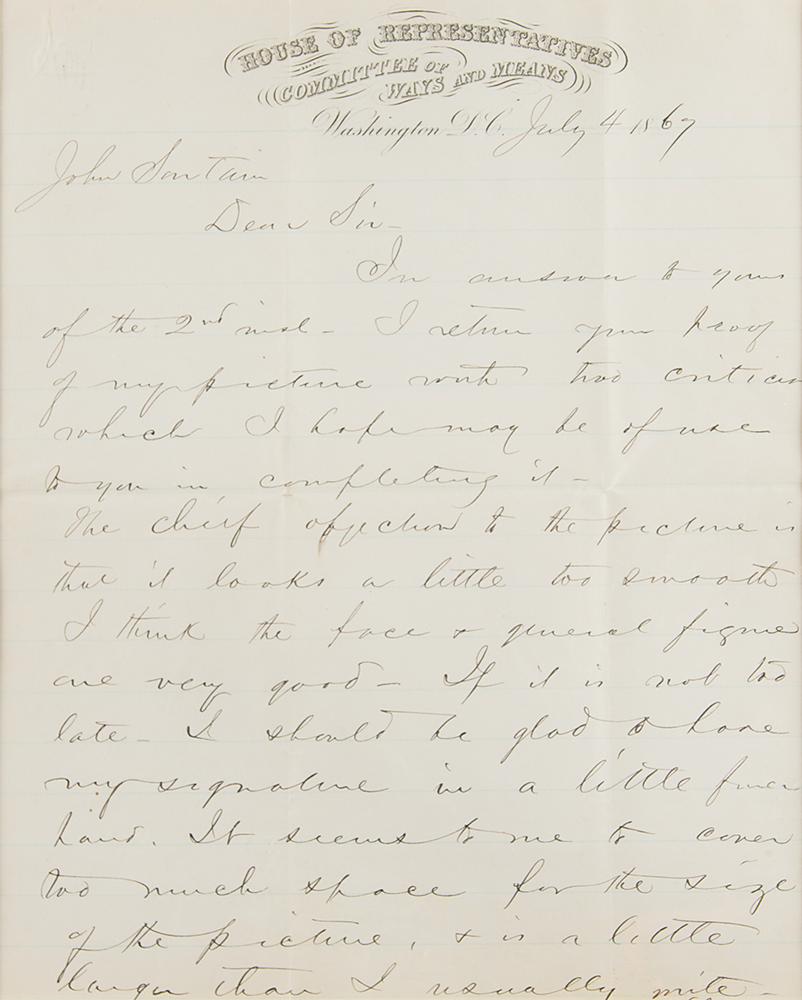 HOUSE OF REPRESENTATIVES
COMMITTEE OF
WAYS AND MEANS
Washington D.C. July 4 1867
John Sartain
Dear Sir –
In answer to yours
of the 2nd inst – I return your proof
of my picture with two
which I hope may be of use
to you in completing it –
The chief objection to the picture is
that it looks a little too smooth
I think the face & general figure
are very good – If it is not too
late – I should be glad to have
my signature in a little finer
hand. It seems to me to cover
too much space for the size
of the picture, & is a little
larger than I usually write –